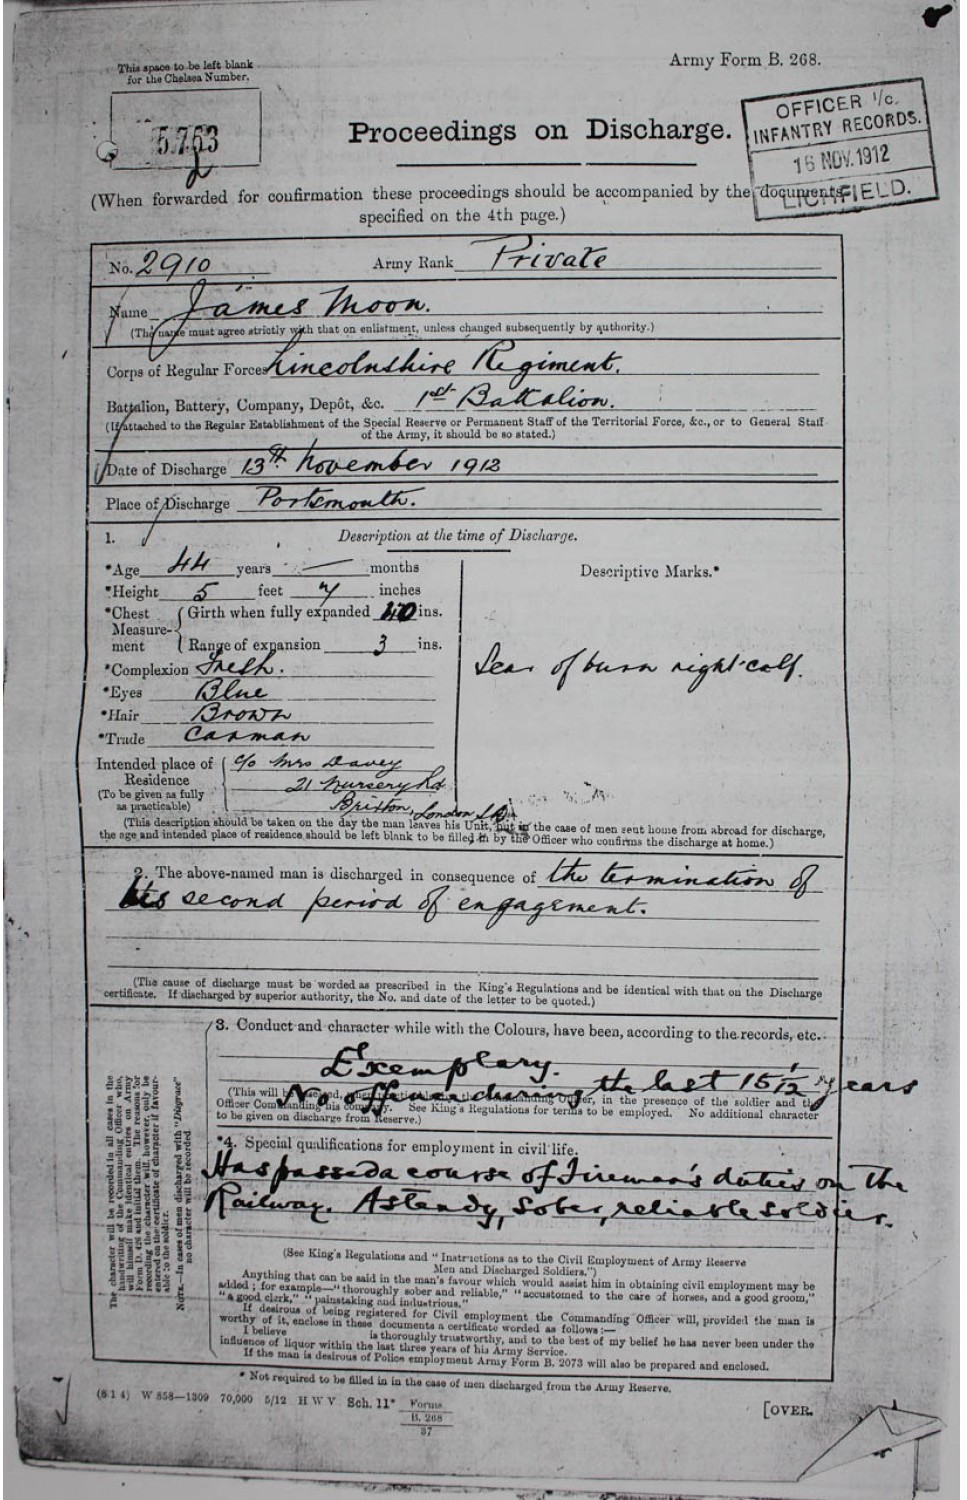 This space to be left blank
for the Chelsea Number.
5763
Army Form B. 268.
Proceedings on Discharge.
OFFICER I/c.
INFANTRY RECORDS.
15 NOV. 1912
LICHFIELD.
(When forwarded for confirmation these proceedings should be accompanied by the documents
specified on the 4th page.)
No. 2910 Army Rank Private
Name James Moon.
(The name must agree strictly with that on enlistment, unless changed subsequently by authority.)
Corps of Regular Forces Lincolnshire Regiment.
Battalion, Battery, Company, Depôt, &c. 1st Battalion.
(If attached to the Regular Establishment of the Special Reserve or Permanent Staff of the Territorial Force, &c., or to General Staff
of the Army, it should be so stated.)
Date of Discharge 13th November 1912
Place of Discharge Portsmouth.
1. Description at the time of Discharge.
*Age 44 years — months
*Height 5 feet 7 inches
*Chest Measure-ment { Girth when fully expanded 40 ins.
Range of expansion 3 ins.
*Complexion Fresh.
*Eyes Blue
*Hair Brown
*Trade Carman
Intended place of Residence
(To be given as fully as practicable)
c/o Mrs Davey
21 Nursery Rd
Brixton, London
Descriptive Marks.*
Scar of burn right calf.
(This description should be taken on the day the man leaves his Unit, but in the case of men sent home from abroad for discharge,
the age and intended place of residence should be left blank to be filled in by the Officer who confirms the discharge at home.)
2. The above-named man is discharged in consequence of the termination of
his second period of engagement.
(The cause of discharge must be worded as prescribed in the King's Regulations and be identical with that on the Discharge
certificate. If discharged by superior authority, the No. and date of the letter to be quoted.)
The character will be recorded in all cases in the
handwriting of the Commanding Officer who,
will himself make identical entries on Army
Form D. 426 and initial them. The reasons for
recording the character will, however, only be
entered on the certificate of character if favour-
able to the soldier.
NOTE.—In cases of men discharged with "Disgrace"
no character will be recorded
3. Conduct and character while with the Colours, have been, according to the records, etc.
Exemplary.
No offence during the last 15 1/12 years
Officer Commanding his company. See King's Regulations for terms to be employed. No additional character
to be given on discharge from Reserve.)
*4. Special qualifications for employment in civil life.
Has passed a course of Fireman's duties on the
Railway. A steady, sober, reliable soldier.
(See King's Regulations and "Instructions as to the Civil Employment of Army Reserve
Men and Discharged Soldiers.")
Anything that can be said in the man's favour which would assist him in obtaining civil employment may be
added; for example—"thoroughly sober and reliable," "accustomed to the care of horses, and a good groom,"
"a good clerk," "painstaking and industrious."
If desirous of being registered for Civil employment the Commanding Officer will, provided the man is
worthy of it, enclose in these documents a certificate worded as follows:—
I believe is thoroughly trustworthy, and to the best of my belief he has never been under the
influence of liquor within the last three years of his Army Service.
If the man is desirous of Police employment Army Form B. 2073 will also be prepared and enclosed.
* Not required to be filled in in the case of men discharged from the Army Reserve.
(8 1 4) W 858—1309 70,000 5/12 H W V Sch. 11* Forms
B. 268
37
[OVER.